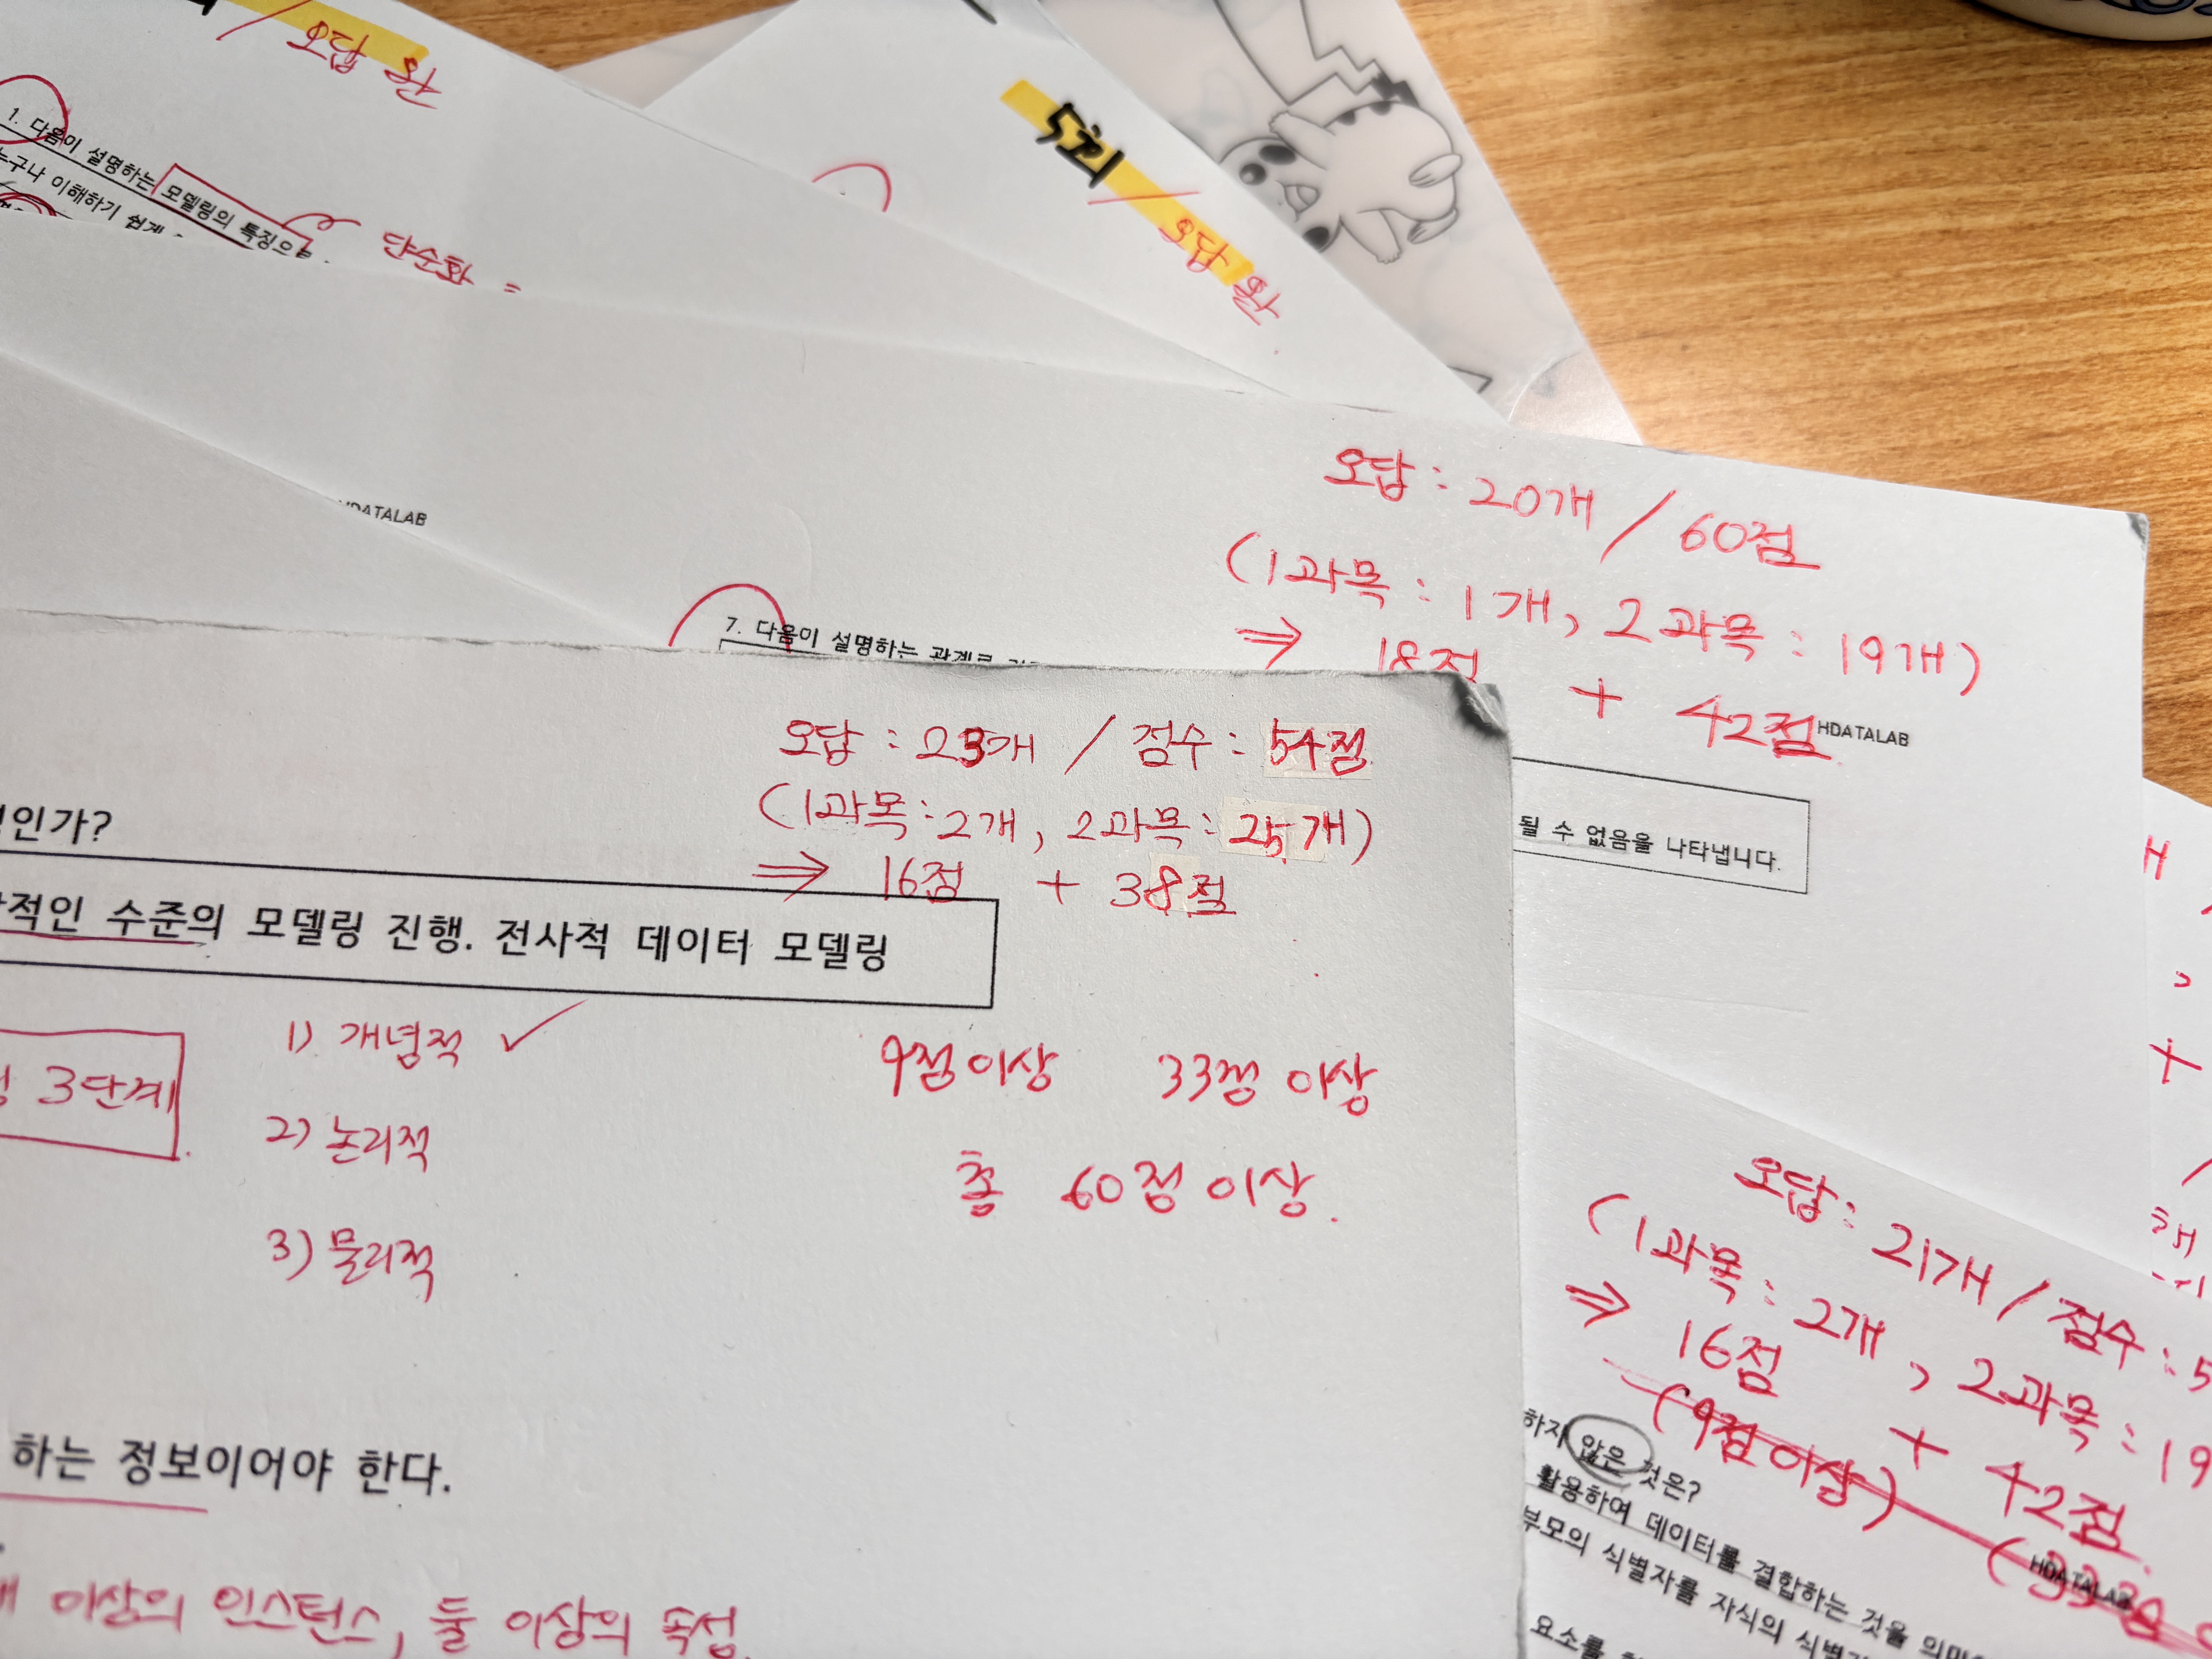 / 오답 온
1. 다음이 설명하는 모델링의 특징으로
누구나 이해하기 쉽게
단순화 =
5회 / 오답 완
HDATALAB
오답 : 20개 / 60점
(1과목 : 1개, 2과목 : 19개)
⇒ 18점 + 42점
HDATALAB
7. 다음이 설명하는 관계로
될 수 없음을 나타냅니다.
오답 : 23개 / 점수 : 54점
(1과목 : 2개, 2과목 : 25개)
⇒ 16점 + 38점
인가?
적인 수준의 모델링 진행. 전사적 데이터 모델링
3단계
1) 개념적 ✓
2) 논리적
3) 물리적
9점 이상 33점 이상
총 60점 이상.
하는 정보이어야 한다.
이상의 인스턴스, 둘 이상의 속성.
오답 : 21개 / 점수 : 5
(1과목 : 2개, 2과목 : 19
⇒ 16점 + 42점
(9점 이상) (33점
HDATALAB
하지 않은 것은?
활용하여 데이터를 결합하는 것을
부모의 식별자를 자식의
요소를